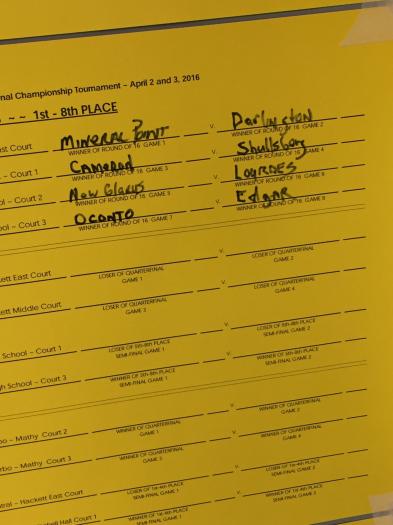 nal Championship Tournament – April 2 and 3, 2016
~ ~ 1st - 8th PLACE
st Court MINERAL POINT v. Darlington
WINNER OF ROUND OF 16 GAME 1 WINNER OF ROUND OF 16 GAME 2
- Court 1 v. Shullsburg
WINNER OF ROUND OF 16 GAME 3 WINNER OF ROUND OF 16 GAME 4
ol – Court 2 New Glarus v. LOURDES
WINNER OF ROUND OF 16 GAME 5 WINNER OF ROUND OF 16 GAME 6
ool – Court 3 OCONTO v. Edgar
WINNER OF ROUND OF 16 GAME 7 WINNER OF ROUND OF 16 GAME 8
ett East Court v.
LOSER OF QUARTERFINAL LOSER OF QUARTERFINAL
GAME 1 GAME 2
kett Middle Court v.
LOSER OF QUARTERFINAL LOSER OF QUARTERFINAL
GAME 3 GAME 4
School – Court 1 v.
LOSER OF 5th-8th PLACE LOSER OF 5th-8th PLACE
SEMI-FINAL GAME 1 SEMI-FINAL GAME 2
gh School – Court 3 v.
WINNER OF 5th-8th PLACE WINNER OF 5th-8th PLACE
SEMI-FINAL GAME 1 SEMI-FINAL GAME 2
bo – Mathy Court 2 v.
WINNER OF QUARTERFINAL WINNER OF QUARTERFINAL
GAME 1 GAME 2
rbo – Mathy Court 3 v.
WINNER OF QUARTERFINAL WINNER OF QUARTERFINAL
GAME 3 GAME 4
ntral – Hackett East Court v.
LOSER OF 1st-4th PLACE LOSER OF 1st-4th PLACE
SEMI-FINAL GAME 1 SEMI-FINAL GAME 2
Hall Court 1 v.
WINNER OF 1st-4th PLACE WINNER OF 1st-4th PLACE
SEMI-FINAL GAME 1 SEMI-FINAL GAME 2